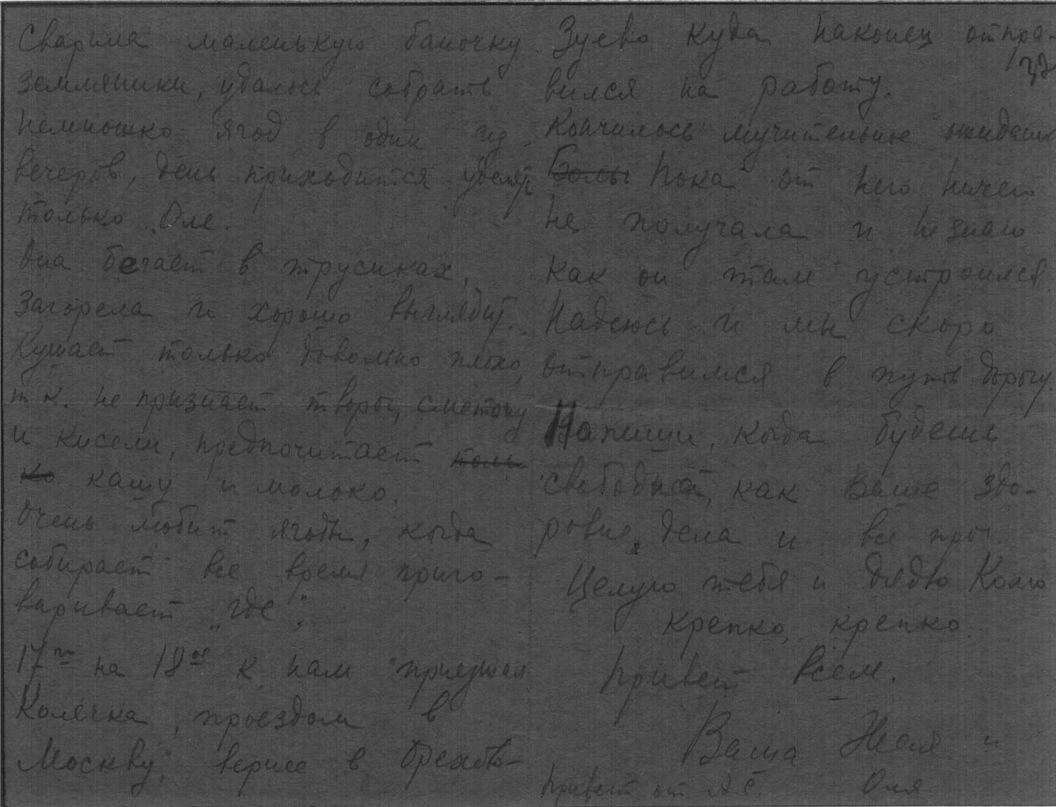 Сварила маленькую баночку
земляники, удалось собрать
немножко ягод в один из
вечеров, день приходится уделять
только Оле.
Она бегает в трусиках,
Загорела и хорошо выглядит.
Кушает только довольно плохо,
т.к. не признает творог, сметану
и кисели, предпочитает толь-
ко кашу и молоко.
Очень любит ягоды, когда
собирает все время приго-
варивает „где".
17го на 18ое к нам приезжал
Колечка, проездом в
Москву, вернее в Орехово-
Зуево куда наконец отпра-
вился на работу.
Кончилось мучительное ожидание
Боль Пока от него ничего
не получала и не знаю
как он там устроился.
Надеюсь и мы скоро
отправимся в путь дорогу
Напиши, когда будешь
свободна, как Ваше здо-
ровие, дела и все проч.
Целую тебя и дядю Колю
крепко, крепко.
Привет всем.
Ваша Неля и
Оля
Привет от